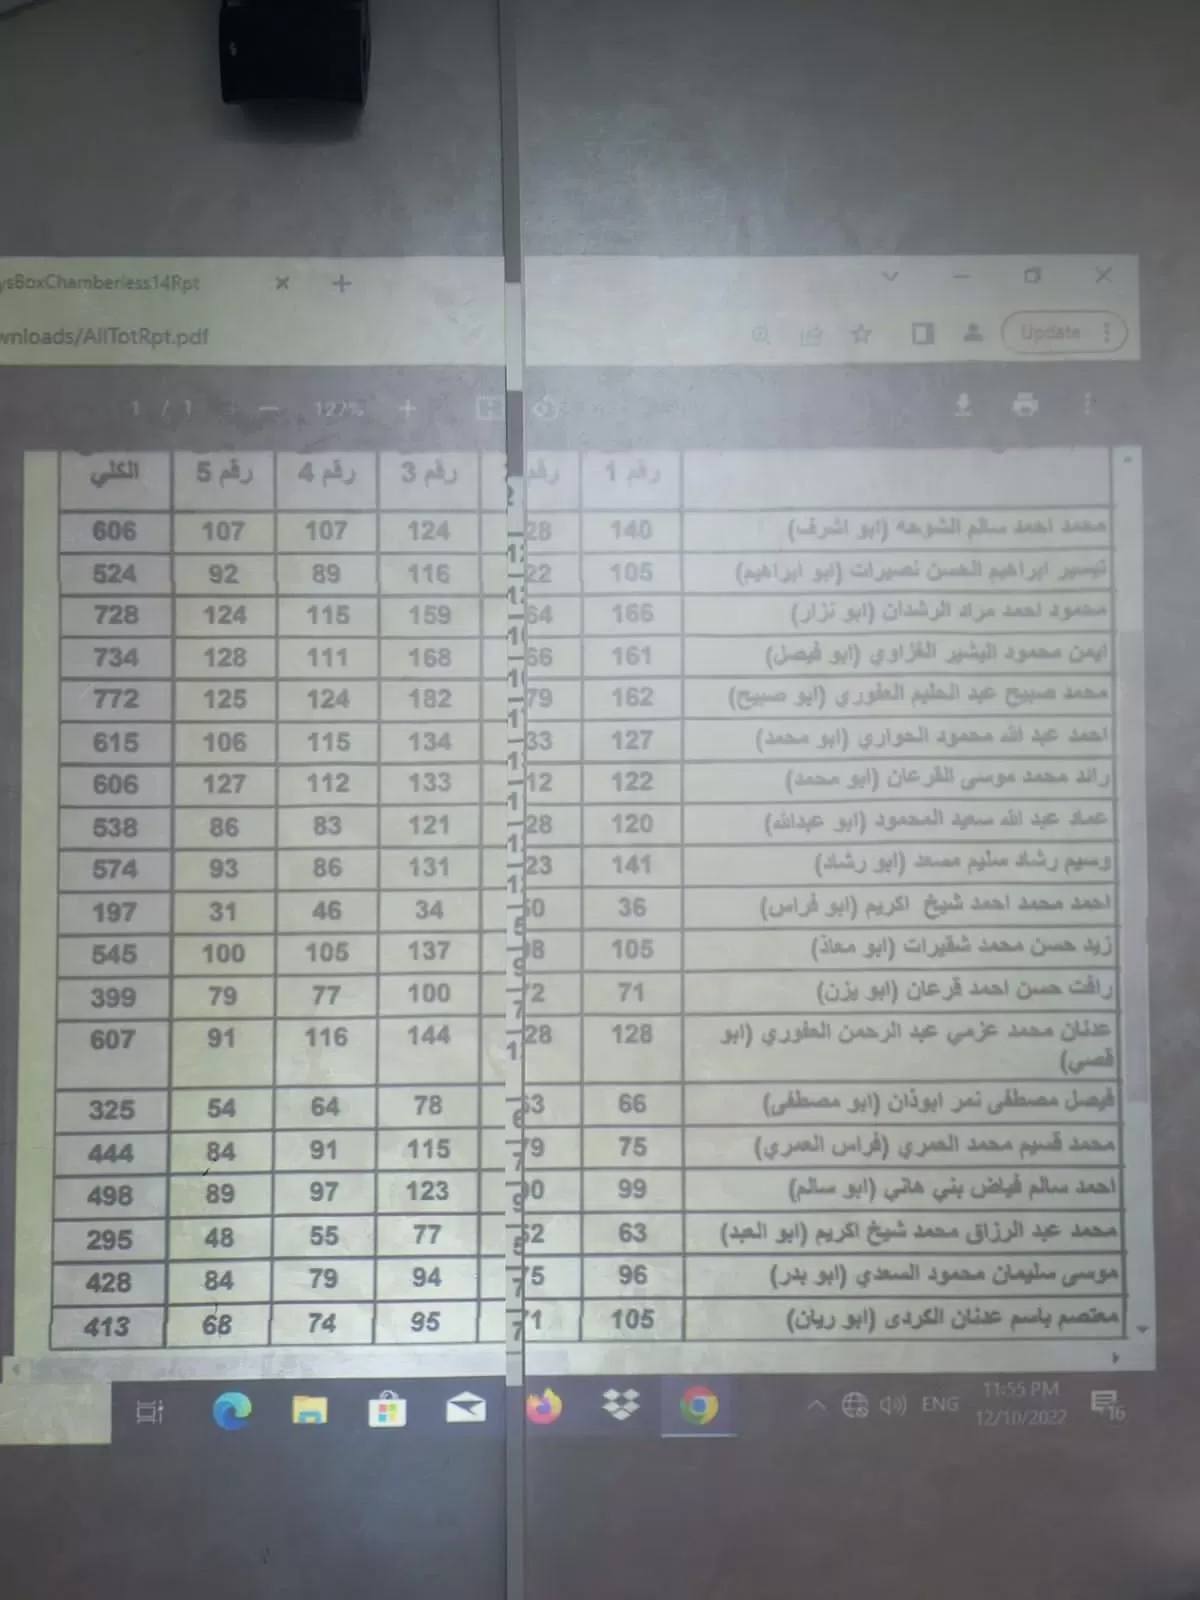 ysBoxChamberless14Rpt
wnloads/AllTotRpt.pdf
Update
1 / 1 127%
رقم 1 رقم 2 رقم 3 رقم 4 رقم 5 الكلي
محمد احمد سالم الشوحه (ابو اشرف) 140 128 124 107 107 606
تيسير ابراهيم الحسن نصيرات (ابو ابراهيم) 105 122 116 89 92 524
محمود احمد مراد الرشدان (ابو نزار) 166 164 159 115 124 728
ايمن محمود البشير الغزاوي (ابو فيصل) 161 166 168 111 128 734
محمد صبيح عبد الحليم العفوري (ابو صبيح) 162 179 182 124 125 772
احمد عبد الله محمود الحواري (ابو محمد) 127 133 134 115 106 615
رائد محمد موسى القرعان (ابو محمد) 122 112 133 112 127 606
عماد عبد الله سعيد المحمود (ابو عبدالله) 120 128 121 83 86 538
وسيم رشاد سليم مسعد (ابو رشاد) 141 123 131 86 93 574
احمد محمد احمد شيخ اكريم (ابو فراس) 36 50 34 46 31 197
زيد حسن محمد شقيرات (ابو معاذ) 105 98 137 105 100 545
رافت حسن احمد قرعان (ابو يزن) 71 72 100 77 79 399
عدنان محمد عزمي عبد الرحمن العفوري (ابو 128 128 144 116 91 607
قصي)
فيصل مصطفى نمر ابوذان (ابو مصطفى) 66 63 78 64 54 325
محمد قسيم محمد العمري (فراس العمري) 75 79 115 91 84 444
احمد سالم فياض بني هاني (ابو سالم) 99 90 123 97 89 498
محمد عبد الرزاق محمد شيخ اكريم (ابو العبد) 63 52 77 55 48 295
موسى سليمان محمود السعدي (ابو بدر) 96 75 94 79 84 428
معتصم باسم عدنان الكردى (ابو ريان) 105 71 95 74 68 413
ENG
11:55 PM
12/10/2022
16